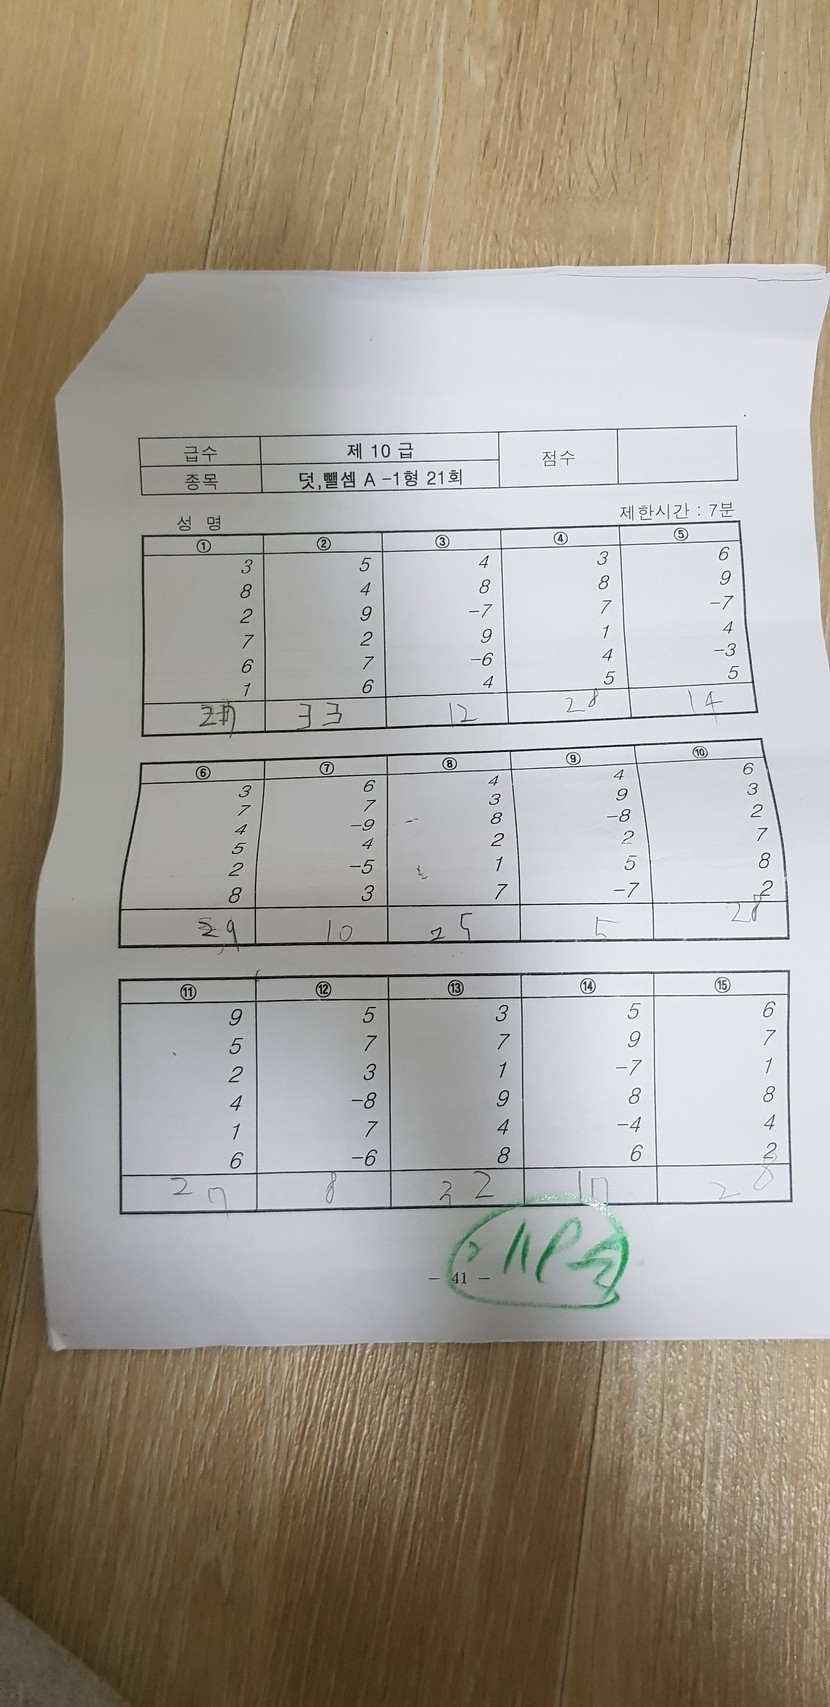 급수 제 10 급 점수
종목 덧,뺄셈 A -1형 21회
성 명 제한시간 : 7분
① ② ③ ④ ⑤
3 5 4 3 6
8 4 8 8 9
2 9 -7 7 -7
7 2 9 1 4
6 7 -6 4 -3
1 6 4 5 5
27 33 12 28 14
⑥ ⑦ ⑧ ⑨ ⑩
3 6 4 4 6
7 7 3 9 3
4 -9 8 -8 2
5 4 2 2 7
2 -5 1 5 8
8 3 7 -7 2
29 10 25 5 28
⑪ ⑫ ⑬ ⑭ ⑮
9 5 3 5 6
5 7 7 9 7
2 3 1 -7 1
4 -8 9 8 8
1 7 4 -4 4
6 -6 8 6 2
27 8 32 17 28
- 41 -